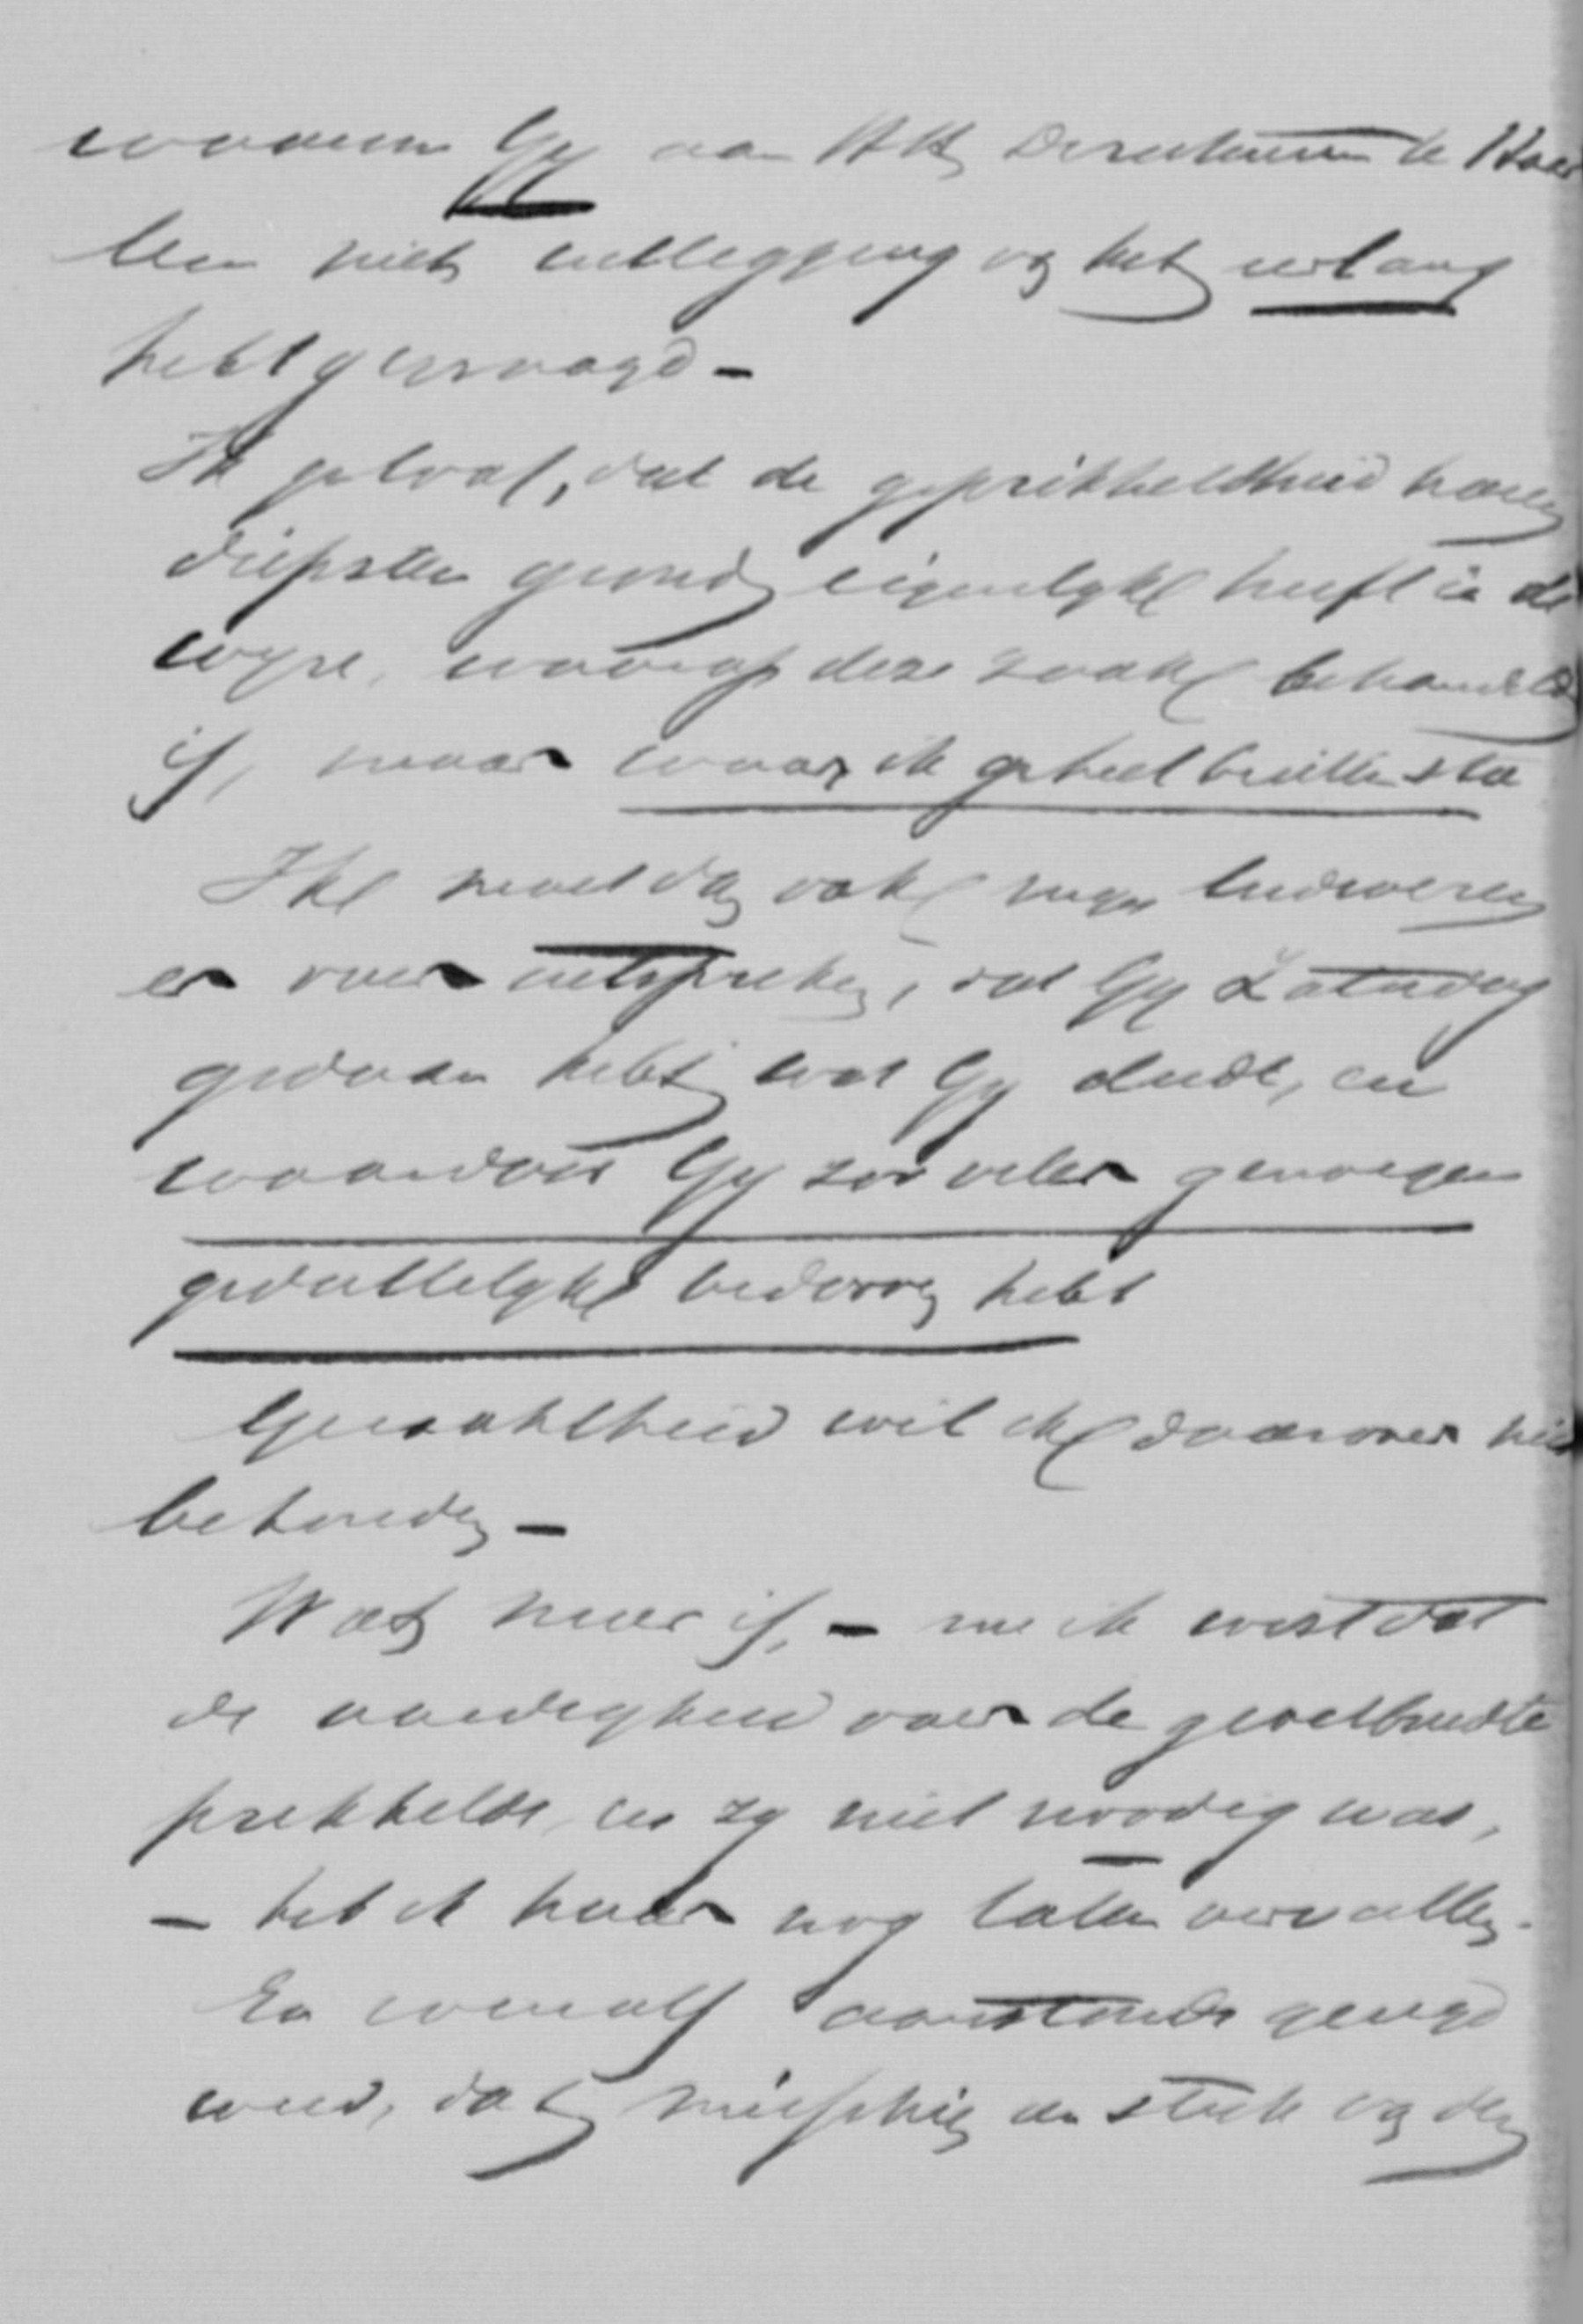 waarom Gy aan HH Directeuren te Haar
lem niet uitlegging van het verlang
hebt gevraagd –
Ik geloof, dat de geprikkeldheid haren
diepsten grond eigenlyk heeft in de
wyze, waarop deze zaak behandeld
is, maar waar ik geheel buiten sta
Ik moet dan ook myn leedwezen
er over uitspreken, dat Gy Zaturdag
gedaan hebt wat Gy deedt, en
waardoor Gy zoo veler genoegen
gedeeltelyk bedorven hebt
Geraaktheid wil ik daarover niet
behouden –
Wat meer is, – nu ik wist dat
de aardigheid over de
prikkelde, en zy niet noodig was,
– heb ik haar nog laten vervallen.
En wenalf aanstonds gezegd
werd, dat misschien een stuk van den